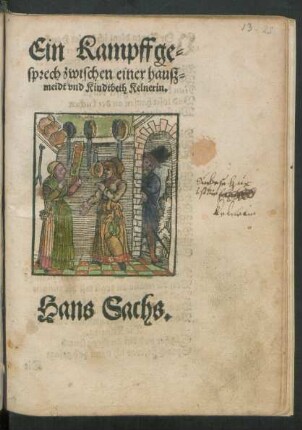 13. 25
Ein Kampff ge-
sprech zwischen einer hauß-
meidt vnd Kindtbeth Kelnerin.
Hans Sachs.